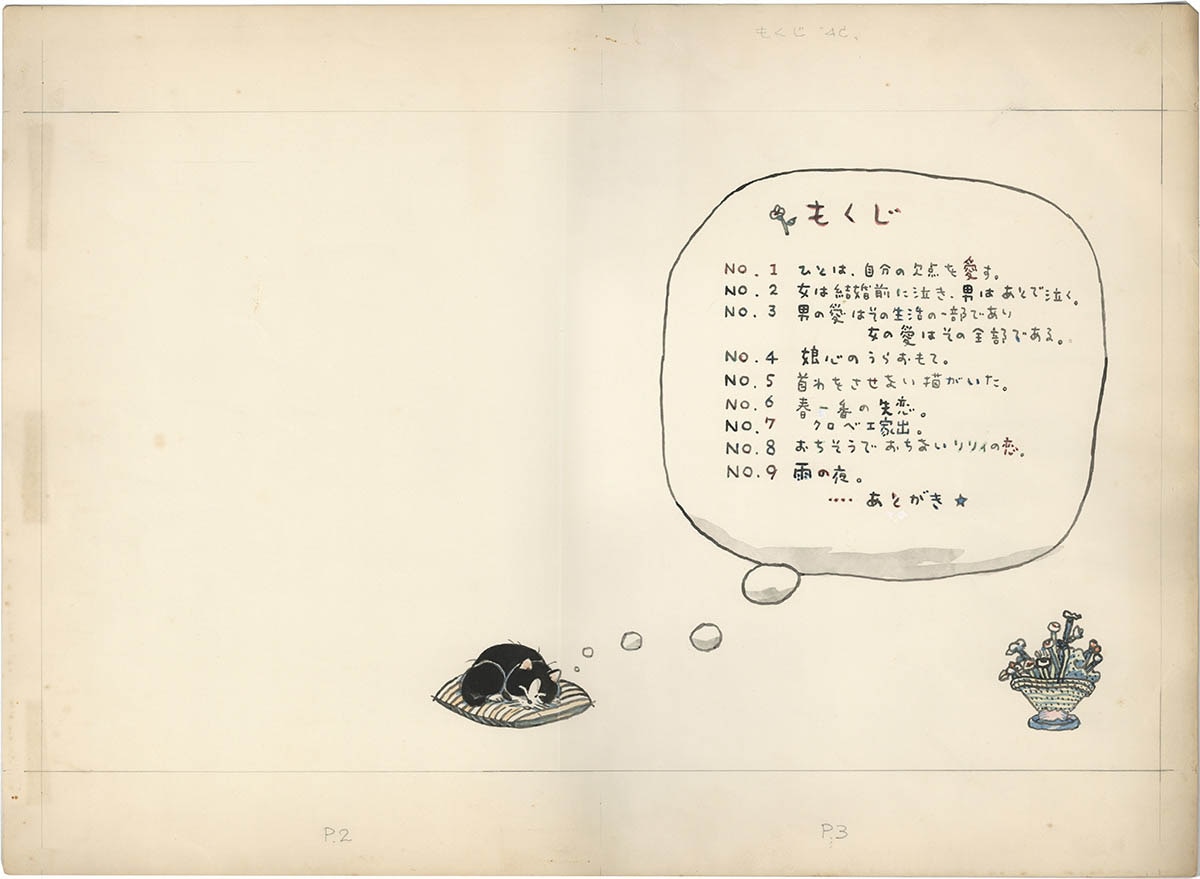 もくじ 4C.
もくじ
NO.1 ひとは、自分の欠点を愛す。
NO.2 女は結婚前に泣き、男はあとで泣く。
NO.3 男の愛はその生活の一部であり
女の愛はその全部である。
NO.4 娘心のうらおもて。
NO.5 首わをさせない猫がいた。
NO.6 春一番の失恋。
NO.7 クロベエ家出。
NO.8 おちそうでおちないリリィの恋。
NO.9 雨の夜。
…… あとがき ★
P.2
P.3